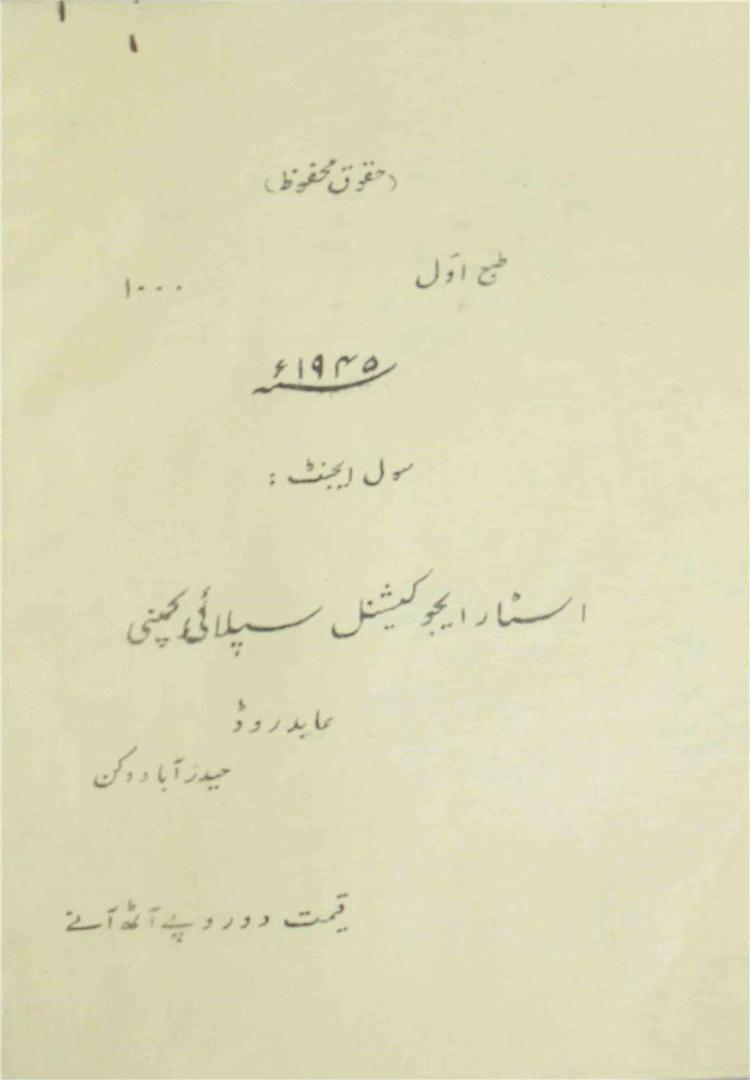 (حقوق محفوظ)
طبع اوّل ۱۰۰۰
۱۹۴۵ء
سول ایجنٹ :
اسٹار ایجوکیشنل سپلائی کمپنی
عابد روڈ
حیدرآباد دکن
قیمت دو روپے آٹھ آنے